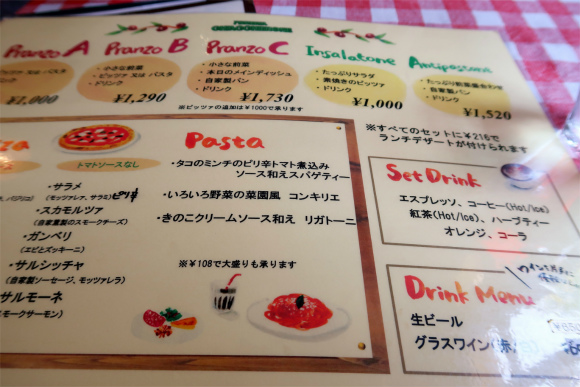 Pranzo A
Pranzo B
・小さな前菜
・ピッツァ 又は パスタ
・ドリンク
¥1,290
Pranzo C
・小さな前菜
・本日のメインディッシュ
・自家製パン
・ドリンク
¥1,730
※ピッツァの追加は¥1000で承ります
Insalatone
・たっぷりサラダ
・素焼きのピッツァ
・ドリンク
¥1,000
Antipastoni
・たっぷり前菜盛合わせ
・自家製パン
・ドリンク
¥1,520
※すべてのセットに¥216で
ランチデザートが付けられます
トマトソースなし
・サラメ
(モッツァレラ、サラミ)ピリ辛
・スカモルツァ
(自家製のスモークチーズ)
・ガンベリ
(エビとズッキーニ)
・サルシッチャ
(自家製ソーセージ、モッツァレラ)
サルモーネ
(スモークサーモン)
Pasta
・タコのミンチのピリ辛トマト煮込み
ソース和えスパゲティー
・いろいろ野菜の菜園風 コンキリエ
・きのこクリームソース和え リガトーニ
※¥108で大盛りも承ります
Set Drink
エスプレッソ、コーヒー(Hot/Ice)
紅茶(Hot/Ice)、ハーブティー
オレンジ、コーラ
Drink Menu
生ビール
グラスワイン(赤